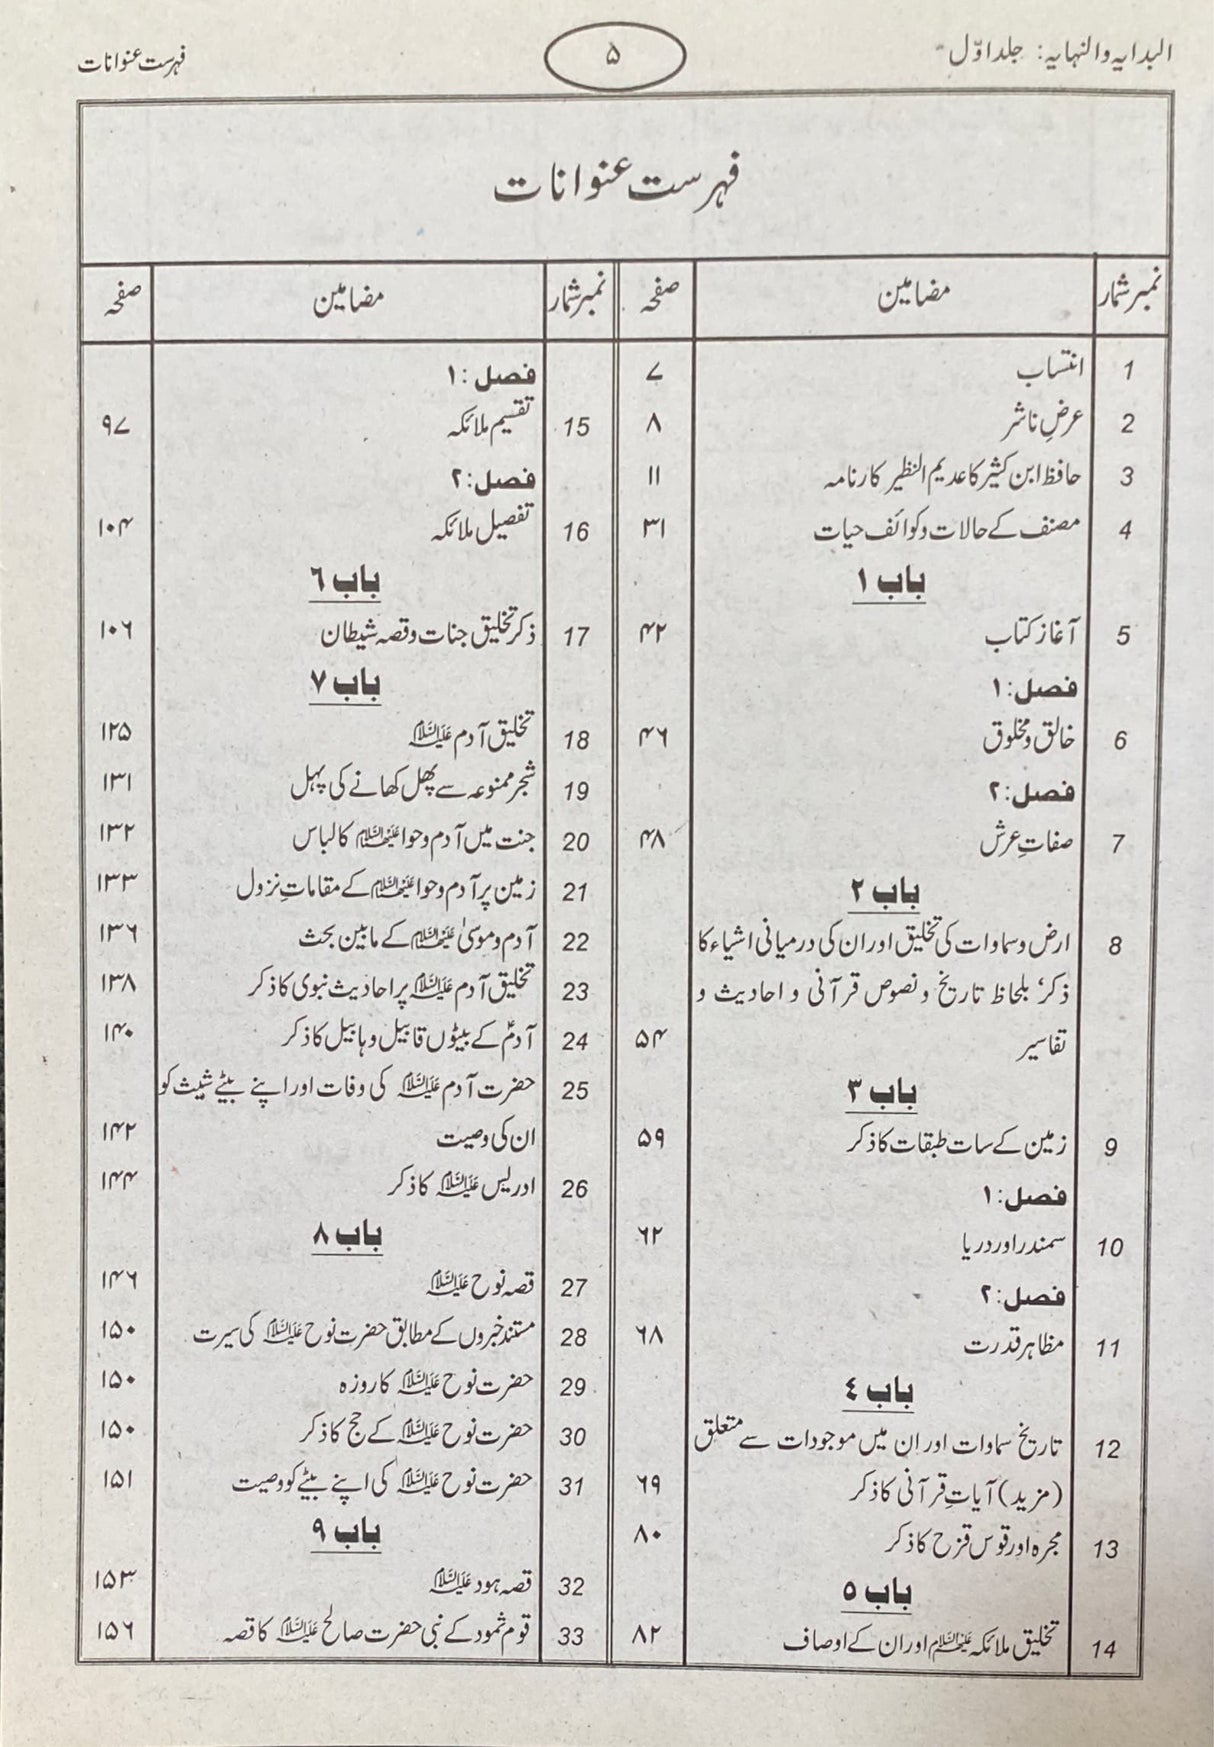 البدایہ والنہایہ: جلد اوّل
۵
فہرست عنوانات
فہرست عنوانات
نمبر شمار مضامین صفحہ
1 انتساب ۷
2 عرضِ ناشر ۸
3 حافظ ابن کثیر کا عدیم النظیر کارنامہ ۱۱
4 مصنف کے حالات و کوائف حیات ۳۱
باب ۱
5 آغاز کتاب ۴۲
فصل: ۱
6 خالق و مخلوق ۴۶
فصل: ۲
7 صفاتِ عرش ۴۸
باب ۲
8 ارض و سماوات کی تخلیق اور ان کی درمیانی اشیاء کا
ذکر بلحاظ تاریخ و نصوص قرآنی و احادیث و
تفاسیر ۵۴
باب ۳
9 زمین کے سات طبقات کا ذکر ۵۹
فصل: ۱
10 سمندر اور دریا ۶۲
فصل: ۲
11 مظاہر قدرت ۶۸
باب ٤
12 تاریخ سماوات اور ان میں موجودات سے متعلق
(مزید) آیاتِ قرآنی کا ذکر ۶۹
13 مجرہ اور قوس قزح کا ذکر ۸۰
باب ۵
14 تخلیق ملائکہ علیہم السلام اور ان کے اوصاف ۸۲
نمبر شمار مضامین صفحہ
فصل: ۱
15 تقسیم ملائکہ ۹۷
فصل: ۲
16 تفصیل ملائکہ ۱۰۴
باب ٦
17 ذکر تخلیق جنات و قصہ شیطان ۱۰۶
باب ۷
18 تخلیق آدم علیہ السلام ۱۲۵
19 شجر ممنوعہ سے پھل کھانے کی پہل ۱۳۱
20 جنت میں آدم و حوا علیہما السلام کا لباس ۱۳۲
21 زمین پر آدم و حوا علیہما السلام کے مقاماتِ نزول ۱۳۳
22 آدم و موسیٰ علیہما السلام کے مابین بحث ۱۳۶
23 تخلیق آدم علیہ السلام پر احادیث نبوی کا ذکر ۱۳۸
24 آدمؑ کے بیٹوں قابیل و ہابیل کا ذکر ۱۴۰
25 حضرت آدم علیہ السلام کی وفات اور اپنے بیٹے شیث کو
ان کی وصیت ۱۴۲
26 ادریس علیہ السلام کا ذکر ۱۴۴
باب ۸
27 قصہ نوح علیہ السلام ۱۴۶
28 مستند خبروں کے مطابق حضرت نوح علیہ السلام کی سیرت ۱۵۰
29 حضرت نوح علیہ السلام کا روزہ ۱۵۰
30 حضرت نوح علیہ السلام کے حج کا ذکر ۱۵۰
31 حضرت نوح علیہ السلام کی اپنے بیٹے کو وصیت ۱۵۱
باب ۹
32 قصہ ہود علیہ السلام ۱۵۳
33 قوم ثمود کے نبی حضرت صالح علیہ السلام کا قصہ ۱۵۶